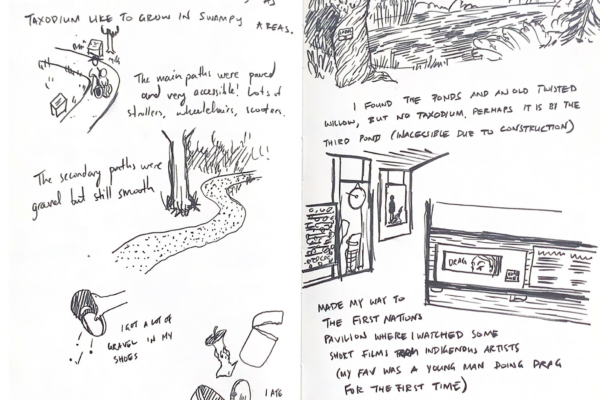 AS
TAXODIUM LIKE TO GROW IN SWAMPY AREAS.
The main paths were paved
and very accessible! Lots of
strollers, wheelchairs, scooters.
The secondary paths were
gravel but still smooth
I GOT A LOT OF
GRAVEL IN MY
SHOES
I ATE
I FOUND THE PONDS AND AN OLD TWISTED
WILLOW, BUT NO TAXODIUM. PERHAPS IT IS BY THE
THIRD POND (INACCESSIBLE DUE TO CONSTRUCTION)
DRAG
MADE MY WAY TO
THE FIRST NATIONS
PAVILION WHERE I WATCHED SOME
SHORT FILMS FROM INDIGENOUS ARTISTS
(MY FAV WAS A YOUNG MAN DOING DRAG
FOR THE FIRST TIME)